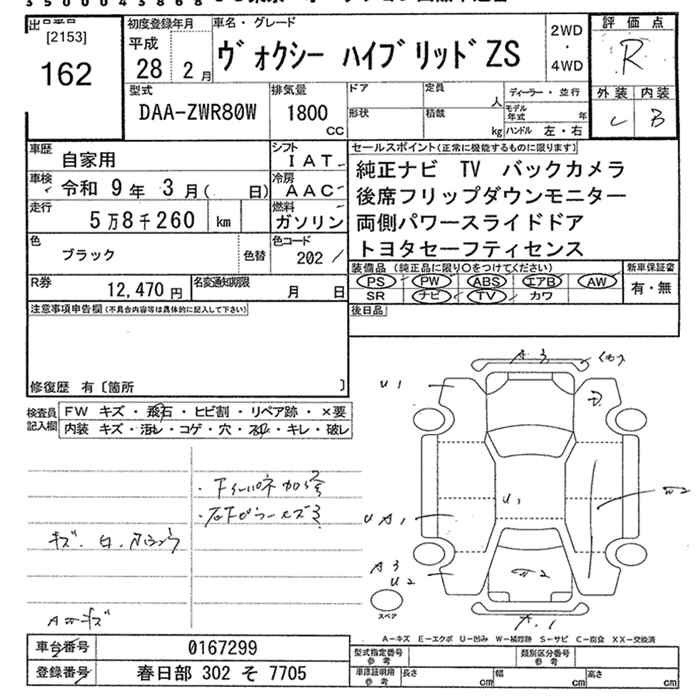 3500043868
出品番号
[2153]
162
初度登録年月
平成
28 2月
車名・グレード
ヴォクシー ハイブリッドZS
2WD
・
4WD
評価点
R
外装 内装
C B
型式
DAA-ZWR80W
排気量
1800
CC
ドア
形状
定員
人
積載
kg
ディーラー・並行
モデル年式 年
ハンドル 左・右
車歴
自家用
シフト
IAT
車検 令和 9年 3月( 日)
冷房
AAC
走行
5万8千260 km
燃料
ガソリン
色
ブラック
色替
色コード
202
R券
12,470円
名変通知期限
月 日
セールスポイント(正常に機能するものに限ります)
純正ナビ TV バックカメラ
後席フリップダウンモニター
両側パワースライドドア
トヨタセーフティセンス
装備品 (純正品に限り〇をつけてください)
PS PW ABS エアB AW
SR ナビ TV カワ
新車保証書
有・無
注意事項申告欄(不具合内容等は具体的に記入して下さい)
後日品
修復歴 有〔箇所 〕
検査員記入欄
FW キズ・飛石・ヒビ割・リペア跡・×要
内装 キズ・汚れ・コゲ・穴・スレ・キレ・破レ
A3
U1
U1
UA1
A3
U2
A1
スペア
A-キズ E-エクボ U-凹み W-補修跡 S-サビ C-腐食 XX-交換済
車台番号 0167299
登録番号 春日部 302 そ 7705
型式指定番号
参考
類別区分番号
参考
車庫証明用
参考
長さ cm
幅 cm
高さ cm